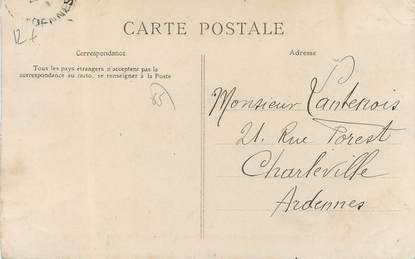 CARTE POSTALE
Correspondance
Tous les pays étrangers n'acceptent pas la
correspondance au recto, se renseigner à la Poste
Adresse
85
Monsieur Lantenois
21. Rue Forest
Charleville
Ardennes